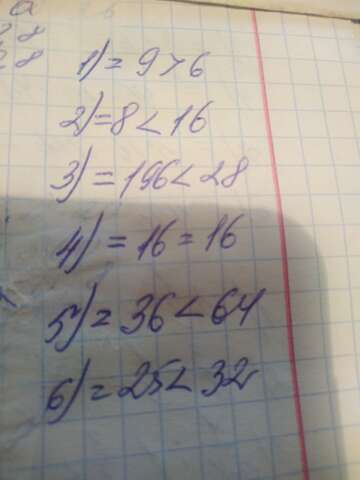 a
28
28
1) = 9 > 6
2) = 8 < 16
3) = 196 < 28
4) = 16 = 16
5) = 36 < 64
6) = 25 < 32